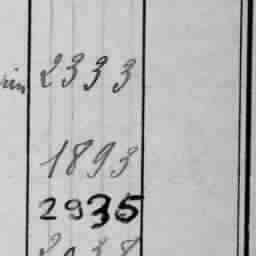 2333
1893
2935